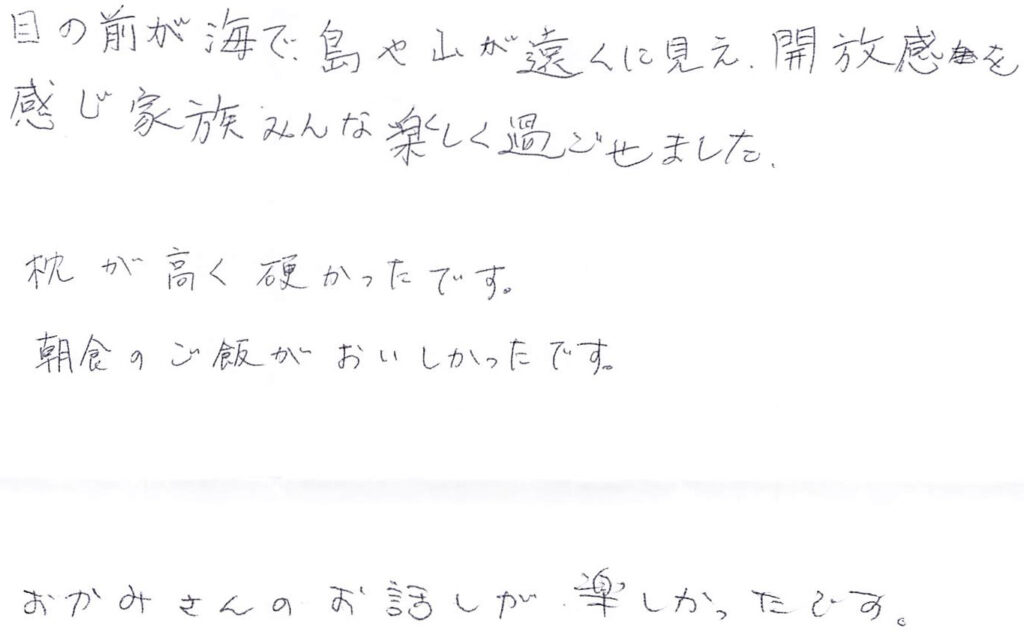 目の前が海で、島や山が遠くに見え、開放感を
感じ家族みんな楽しく過ごせました。
枕が高く硬かったです。
朝食のご飯がおいしかったです。
おかみさんのお話しが楽しかったです。